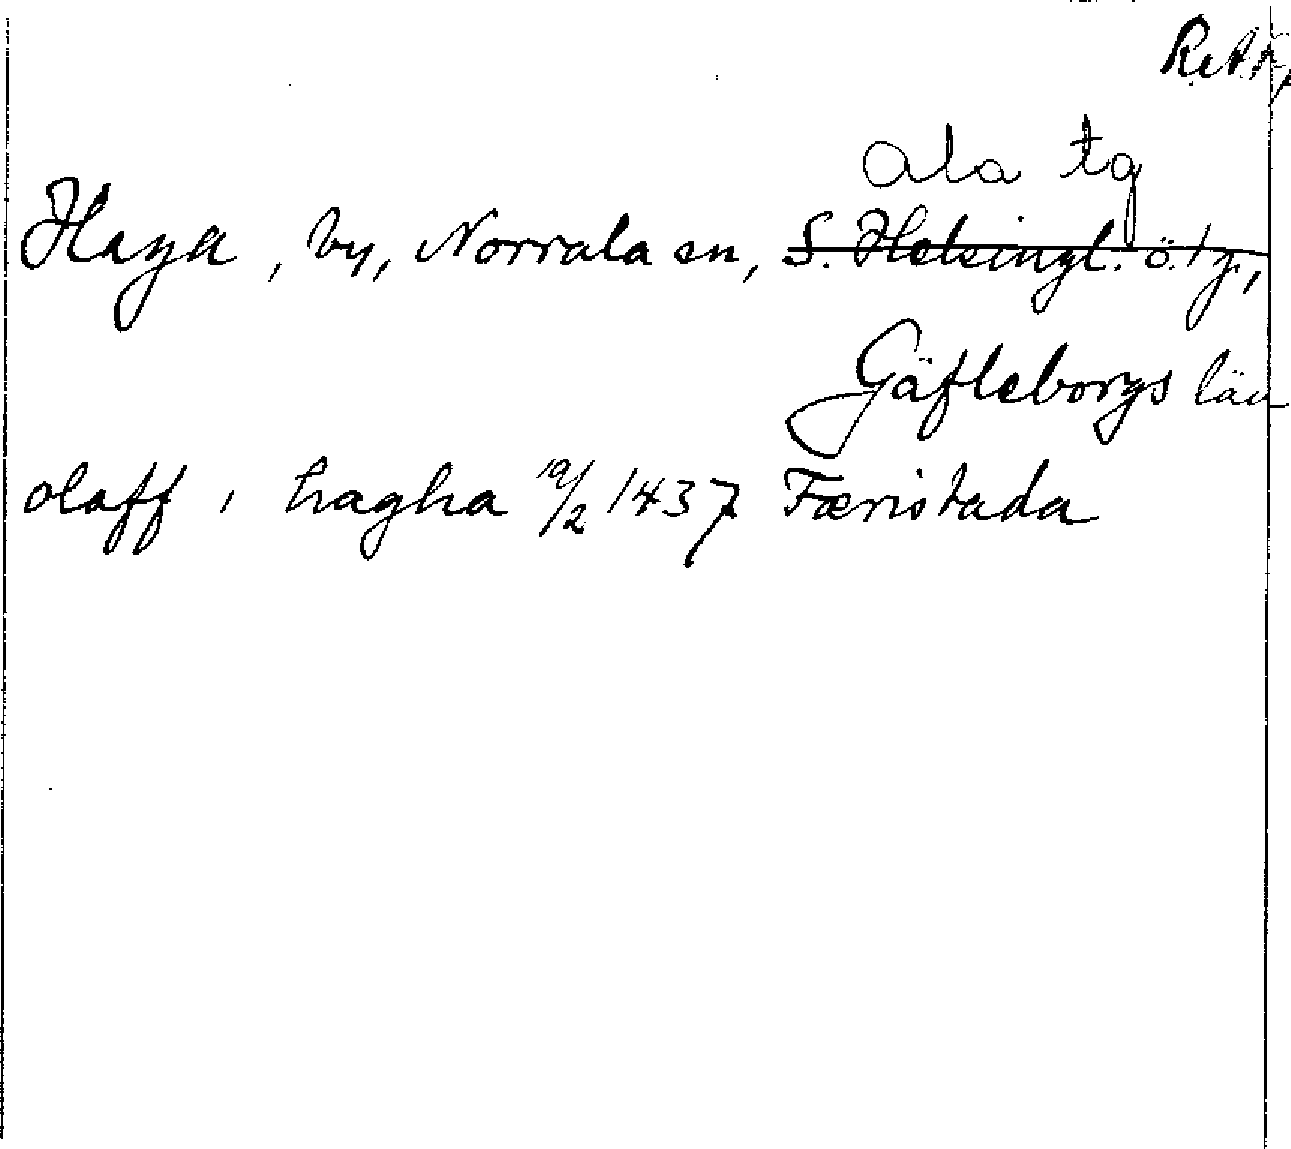 Ala tg
Haga, by, Norrala sn, S. Helsingl. ö. tg.,
Gäfleborgs län
olaff i hagha 19/2 1437 Færistada